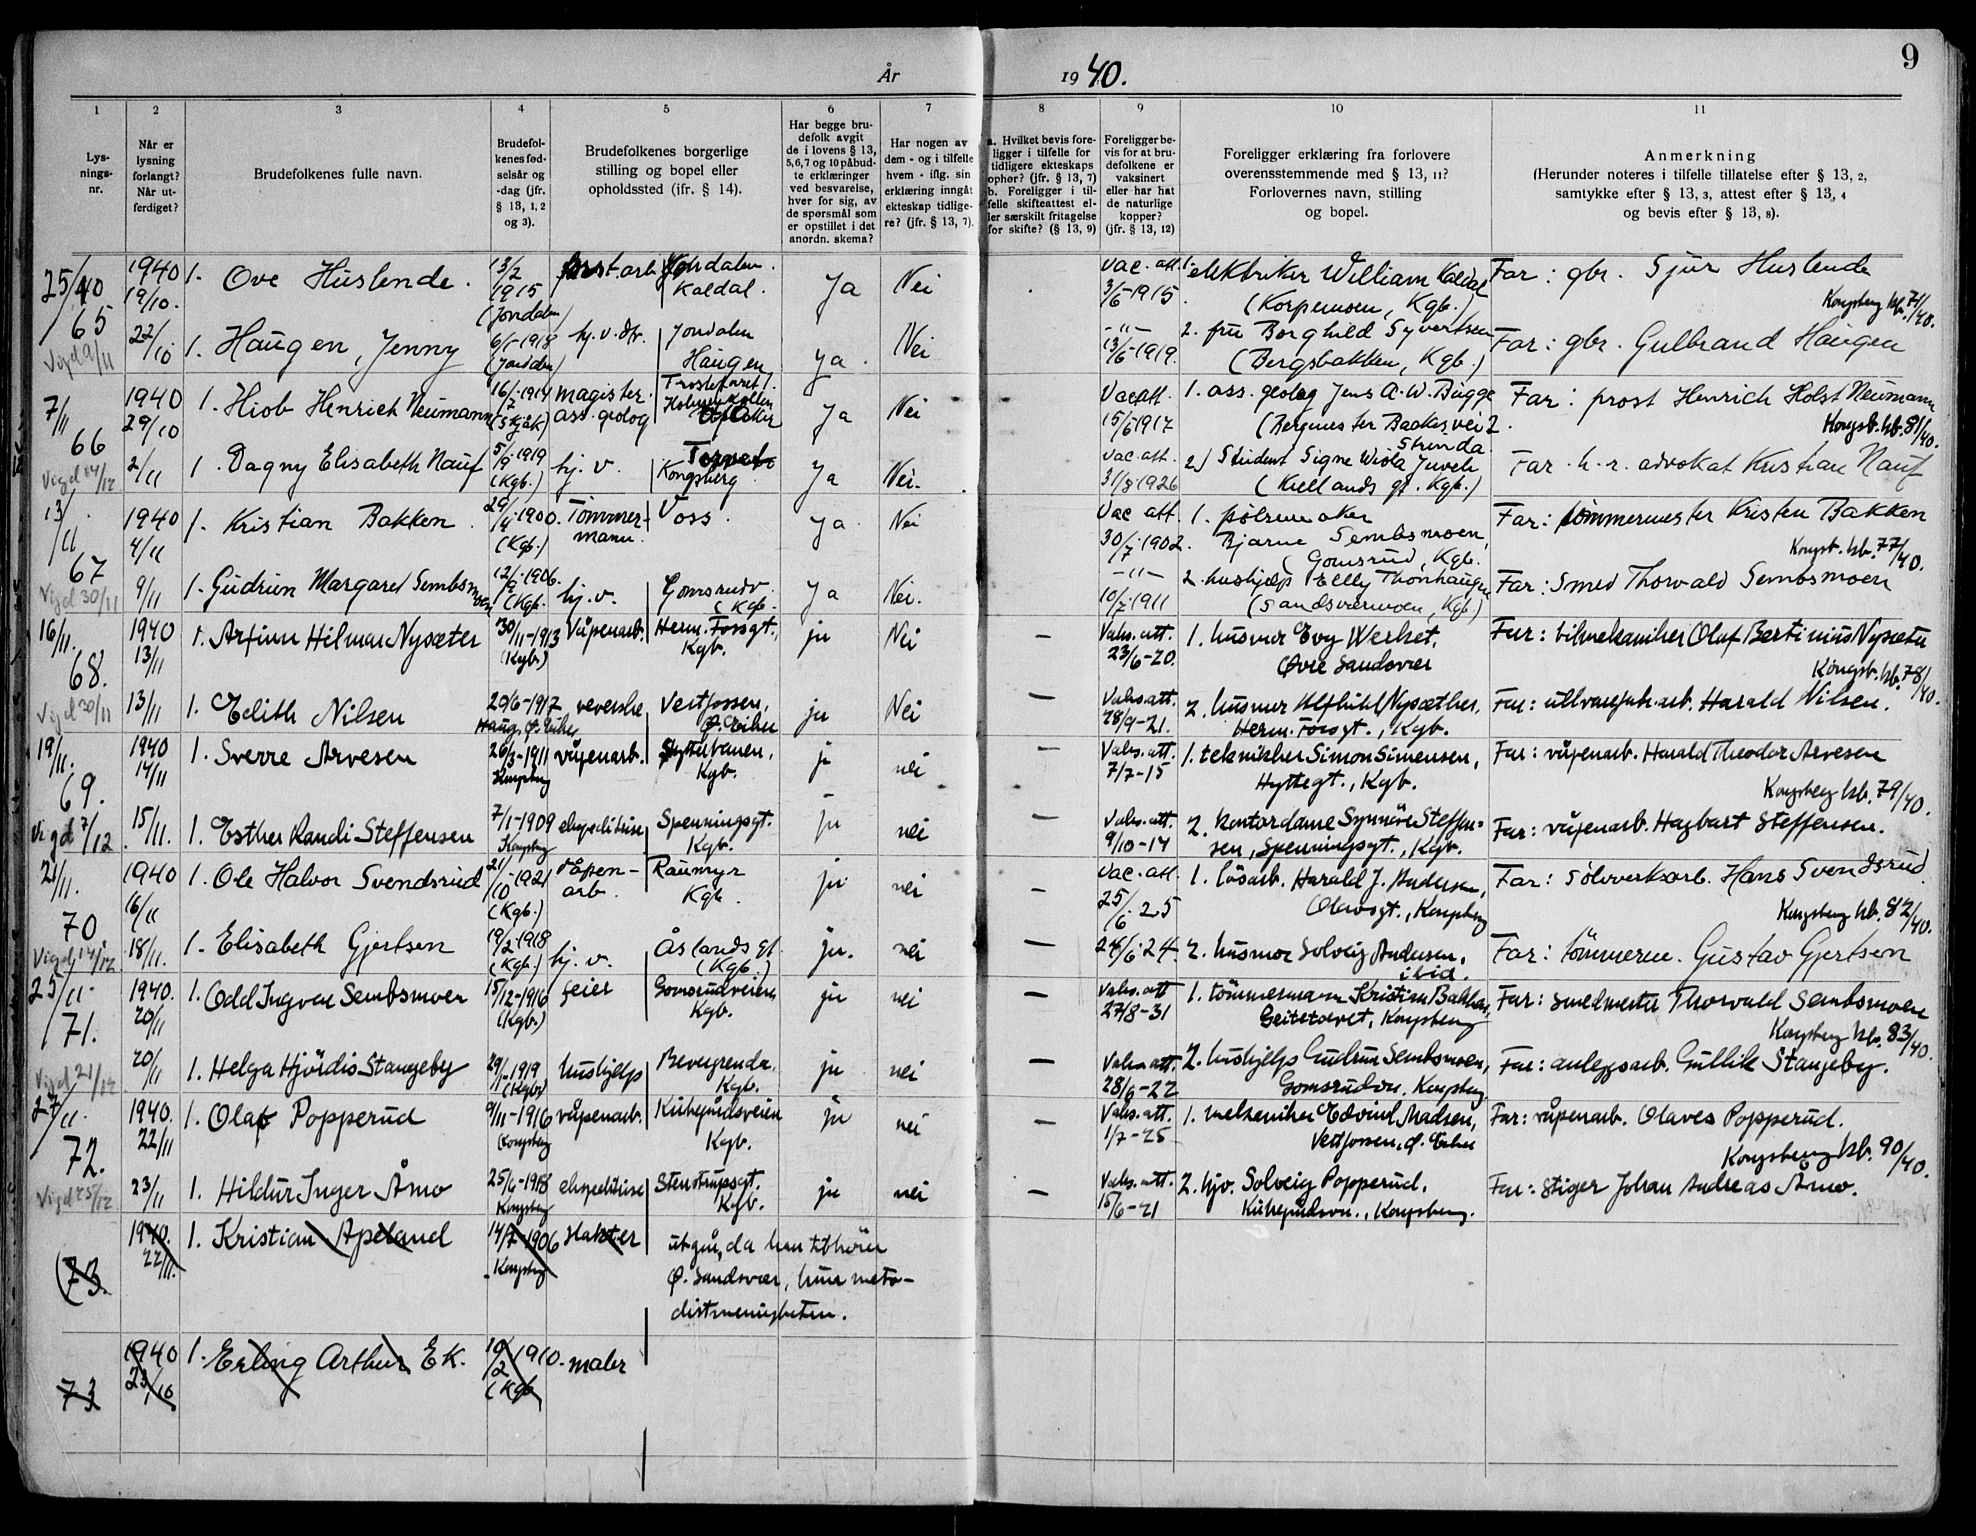 9
År 1940.
1 2 3 4 5 6 7 8 9 10 11
Lys-
nings-
nr.
Når er
lysning
forlangt?
Når ut-
ferdiget?
Brudefolkenes fulle navn.
Brudefol-
kenes fød-
selsår og
-dag (jfr.
§ 13, 1, 2
og 3).
Brudefolkenes borgerlige
stilling og bopel eller
opholdssted (ifr. § 14).
Har begge bru-
defolk avgit
de i lovens § 13,
5,6,7 og 10 påbud-
te erklæringer
ved besvarelse,
hver for sig, av
de spørsmål som
er opstillet i det
anordn. skema?
Har nogen av
dem - og i tilfelle
hvem - iflg. sin
erklæring inngåt
ekteskap tidlige-
re? (jfr. § 13, 7).
a. Hvilket bevis fore-
ligger i tilfelle for
tidligere ekteskaps
opher? (jfr. § 13, 7)
b. Foreligger i til-
felle skifteattest el-
ler særskilt fritagelse
for skifte? (§ 13, 9)
Foreligger be-
vis for at bru-
defolkene er
vaksinert
eller har hat
de naturlige
kopper?
(jfr. § 13, 12)
Foreligger erklæring fra forlovere
overensstemmende med § 13, 11?
Forlovernes navn, stilling
og bopel.
Anmerkning
(Herunder noteres i tilfelle tillatelse efter § 13, 2,
samtykke efter § 13, 3, attest efter § 13, 4
og bevis efter § 13, 8).
25/40
65
Vigd 9/11
1940
19/10.
1. Ove Huslende.
13/2
1915
(Jondalen)
Jondalen.
Kaldal.
Ja
Nei
Vac. att.
3/6-1915
1. elektriker William Kaldal
(Korpemoen, Kgb.)
Far: gbr. Sjur Huslende
Kongsberg kb. 71/40.
22/10
1. Haugen, Jenny
6/1-1918
(Jondalen)
hj. v. dtr.
Jondalen
Haugen
Ja.
Nei
-"-
13/6-1919.
2. fru Borghild Syvertsen
(Bergsbakken, Kgb.)
Far: gbr. Gulbrand Haugen
7/11
66
Vigd 14/12
1940
29/10
1. Hiob Henrich Neumann
16/7-1914
(Skjåk)
magister.
ass. geolog
Holmenkollen
Ja
Nei
Vac att.
15/6 1917
1. ass. geolog Jens A. W. Bugge
(Bergmester Backes vei 2.
Far: prost Henrich Holst Neumann
Kongsb. kb. 81/40.
2/11
1. Dagny Elisabeth Nauf
5/9 1919
(Kgb.)
hj. v.
Kongsberg
Ja
Nei.
Vac. att.
31/8 1926
2) Student Signe Wiola Juveli
(Kiellands gt. Kgb.)
Far. h.r. advokat Kristian Nauf
13/11
67
Vigd 30/11
1940
4/11
1. Kristian Bakken.
29/4-1900.
(Kgb.)
Tömmer-
mann.
Voss.
Ja.
Nei
Vac att.
30/7-1902.
1. pølsemaker
Bjarne Sembsmoen,
(Gomsrud, Kgb.
Far: tömmermester Kristen Bakken
Kongsb. kb. 77/40.
9/11
1. Gudrun Margaret Sembsmoen
12/9-1906.
(Kgb.
hj. v.
Gomsrudv.
(Kgb.
Ja
Nei.
-"-
10/7-1911
2. hushjelp Elly Thonhaugen
(Sandsværmoen, Kgb.)
Far: Smed Thorvald Sembsmoen
16/11.
68.
Vigd 30/11
1940
13/11
1. Arfinn Hilmar Nysæter
30/11-1913
(Kgb.)
Våpenarb.
Herm. Fossgt.,
Kgb.
ja
Nei
—
Vaks. att.
23/6-20.
1. husmor Evy Werket,
Øvre Sandsvær
Far: bilmekaniker Olaf Bertinius Nysæter
Kongsb. kb. 78/40.
13/11
1. Edith Nilsen
20/6-1917
Haug, Ø. Eiker
Vestfossen,
Ø. Eiker
ja
Nei
—
Vaks. att.
28/9-21.
2. husmor Alfhild Nysæther,
Herm. Fossgt., Kgb.
Far: ullvarefabr.arb. Harald Nilsen.
19/11.
69.
Vigd 7/12
1940
14/11
1. Sverre Arvesen
26/3-1911
Kongsberg
våpenarb.
Skytterbanen,
Kgb.
ja
nei
—
Vaks. att.
7/7-15
1. tekniker Simon Simensen,
Hyttegt., Kgb.
Far: våpenarb. Harald Theodor Arvesen
Kongsberg kb. 79/40.
15/11.
1. Esther Randi Steffensen
7/1-1909
Kongsberg
ekspeditrise
Spenningsgt.
Kgb.
ja
nei
—
Vaks. att.
9/10-14
2. kontordame Synnöve Steffen-
sen, Spenningsgt., Kgb.
Far: våpenarb. Hagbart Steffensen.
21/11.
70
Vigd. 14/12
1940
16/11
1. Ole Halvor Svendsrud
21/10-1921
(Kgb.)
våpen-
arb.
Raumyr
Kgb.
ja
nei
—
Vac. att.
25/6.25
1. løsarb. Harald J. Andersen,
Olavsgt., Kongsberg
Far: Sölvverksarb. Hans Svendsrud.
Kongsberg kb. 82/40.
18/11.
1. Elisabeth Gjertsen
19/2-1918
(Kgb.)
hj. v.
Åslandsgt.
(Kgb.)
ja.
nei
—
24/6-24
2. husmor Solveig Andersen,
ibid.
Far: tömmerm. Gustav Gjertsen
25/11
71.
Vigd 21/12
1940.
20/11
1. Odd Ingvar Sembsmoen
15/12-1916
(Kgb.)
feier
Gomsrudveien
Kgb.
ja
nei
—
Vaks. att
27/8-31
1. tömmermann Kristian Bakken,
Kongsberg
Far: smedmester Thorvald Sembsmoen
Kongsberg kb. 83/40.
20/11
1. Helga Hjördis Stangeby
29/1-1919
(Kgb.)
hushjelp
Bevergrenda,
Kgb.
ja
nei
—
Vaks. att.
28/6-22
2. hushjelp Gudrun Sembsmoen,
Gomsrudvn. Kongsberg
Far: anleggsarb. Gullik Stangeby.
27/11.
72.
Vigd 25/12
1940.
22/11
1. Olaf Popperud
9/11-1916
Kongsberg
våpenarb.
Kirkegårdsveien
Kgb.
ja
nei
—
Vaks. att.
1/7-25
1. mekaniker Edvind Madsen,
Vestfossen, Ø. Eiker
Far: våpenarb. Olaves Popperud.
Kongsberg kb. 90/40.
23/11
1. Hildur Inger Åmo
25/6-1918
Kongsberg
ekspeditrise
Stenstrupsgt.
Kgb.
ja
nei
—
Vaks. att.
15/6-21
2. hjv. Solveig Popperud,
Kirkegårdsvn., Kongsberg.
Far: Stiger Johan Andreas Åmo.
(73.
1940.
22/11.
1. Kristian Apeland
14/7-1906
Kongsberg
utgår, da han tilhører
Ø. Sandsvær, hun meto-
distmenigheten.
73
1940
23/10
1. Erling Arthur Ek.
10/2 1910.
(Kgb.
maler